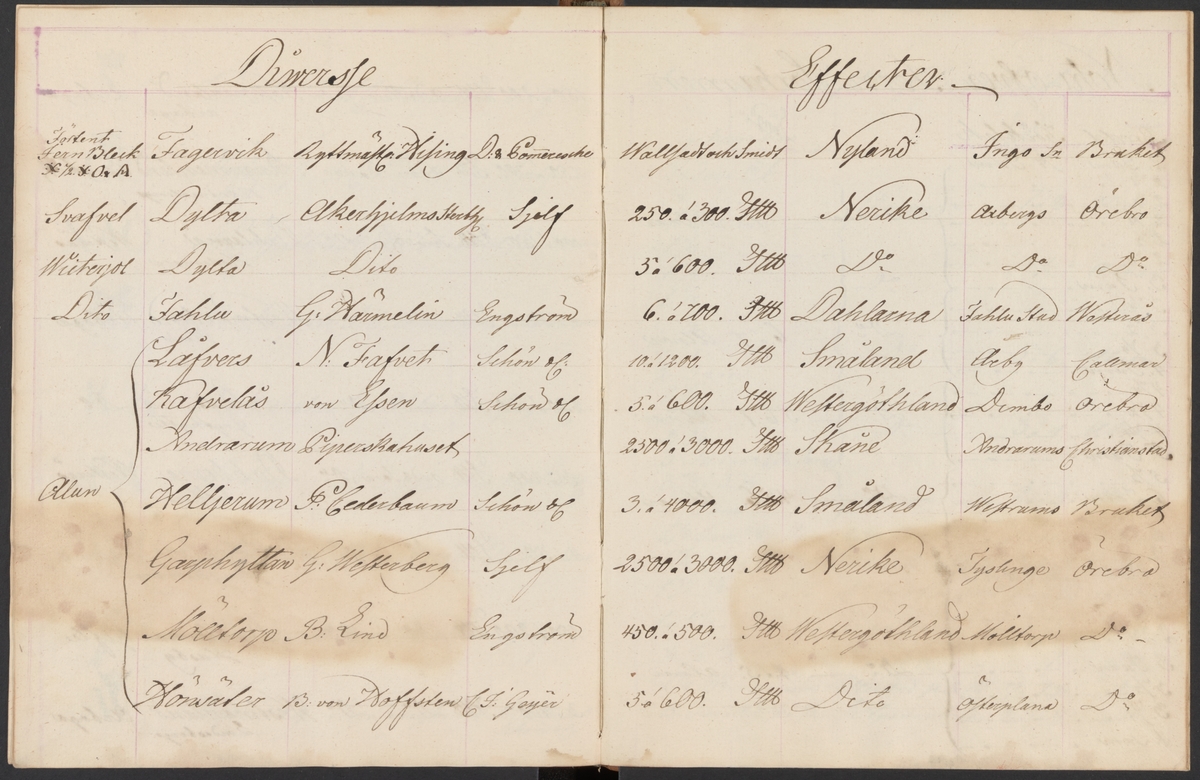 Diwersse Effecter.
Förtent
Jern Bleck Fagervik Ryttmäst. Hising D:s Commerseche Wallfadt och Smidt Nyland Ingo Sn Bruket
Svafvel Dylta Akerhjelms Sterbh. Sjelf 250. á 300. Sttt Nerike Axbergs Örebro
Witterjol Dylta Dito 5 á 600. Sttt Do Do Do
Dito Fahlu G: Härmelin Engström 6. á 700. Sttt Dahlarna Fahlu Stad Westerås
Låfvers N: Fafvet Schön &C: 10. á 1200. Sttt Småland Arby Callmar
Kafvelås von Essen Schön &C 5. á 600. Sttt Westergöthland Dimbo Örebro
Andrarum Piperskahuset 2500 á 3000. Sttt Skåne Andrarums Christianstad
Alun Helljerum P: Cederbaum Schön &C 3. á 4000. Sttt Småland Westrums Bruket
Garphyttan G: Westerberg Sjelf 2500 á 3000. Sttt Nerike Tyslinge Örebro
Mölltorp B: Lind Engström 450. á 500. Sttt Westergöthland Mölltorp Do -
Hönsäter B: von Hoffsten C F: Geijer 5 á 600. Sttt Dito Österplana Do